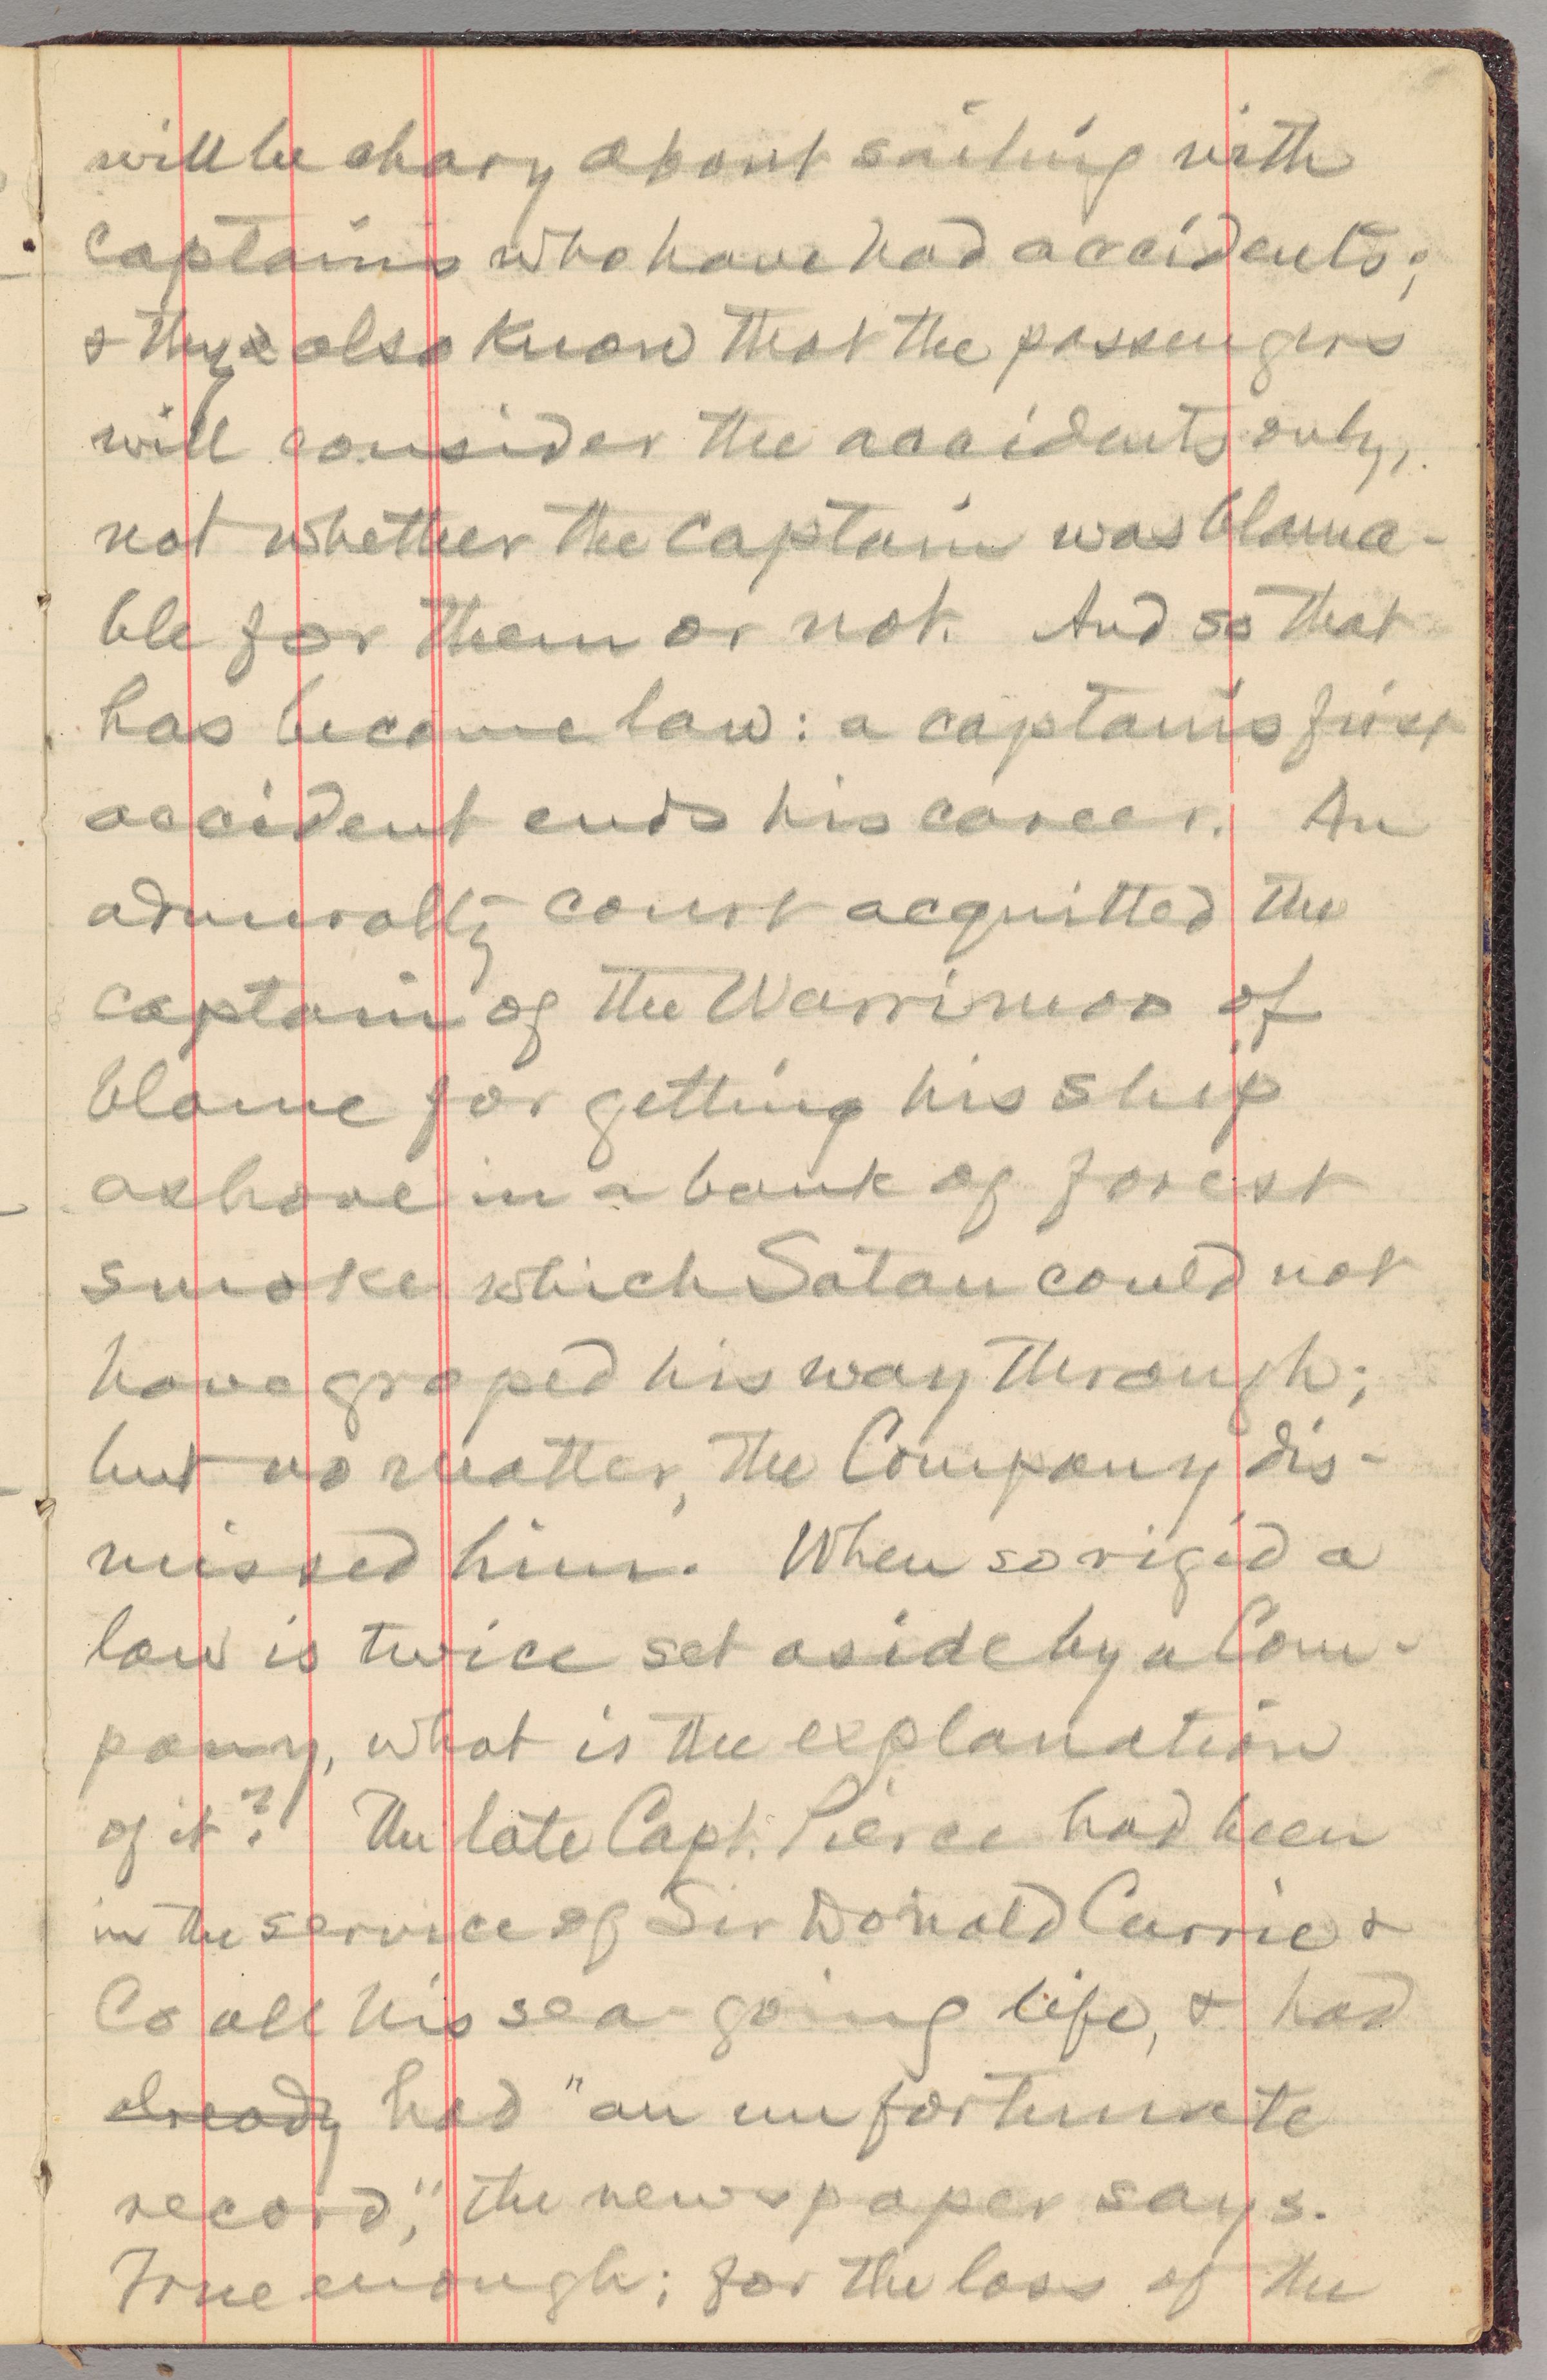 will be chary about sailing with
captains who have had accidents;
& they also know that the passengers
will consider the accidents only,
not whether the captain was blama-
ble for them or not. And so that
has become law: a captain's first
accident ends his career. An
admiralty court acquitted the
captain of the Warrimoo of
blame for getting his ship
ashore in a bank of forest
smoke which Satan could not
have groped his way through;
but no matter, the Company dis-
missed him. When so rigid a
law is twice set aside by a Com-
pany, what is the explanation
of it? The late Capt. Pierce had been
in the service of Sir Donald Currie &
Co all his sea-going life, & had
already had "an unfortunate
record," the newspaper says.
True enough; for the loss of the